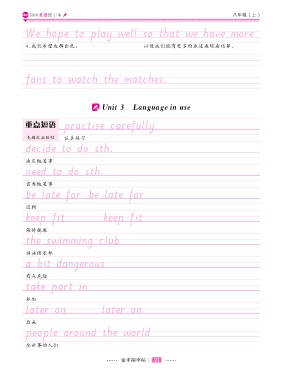 八年级(上)
We hope to play well so that we have more
4.我们希望她都出色, 以便我们能有更多的
fans to watch the matches.
Unit 3 Language in use
重点短语 practise carefully
认真练习
decide to do sth.
决定做某事
need to do sth.
需要做某事
be late for be late for
迟到
keep fit keep fit
保持健康
the swimming club
游泳俱乐部
a bit dangerous
有点危险
take part in
参加
later on later on
后来
people around the world
全世界的人们